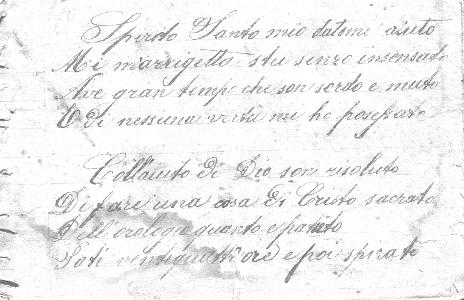 Spirito Santo mio datemi aiuto
Mi marrigetto stu senzo insensato
Ave gran tempo che son sordo e muto
E di nessuna vertù me ho posessato
Coll'aiuto di Dio son risoluto
Di fare una cosa di Cristo sacrato
Dell'orologio quanto e patuto
Patì ventiquattr'ore e poi spirato